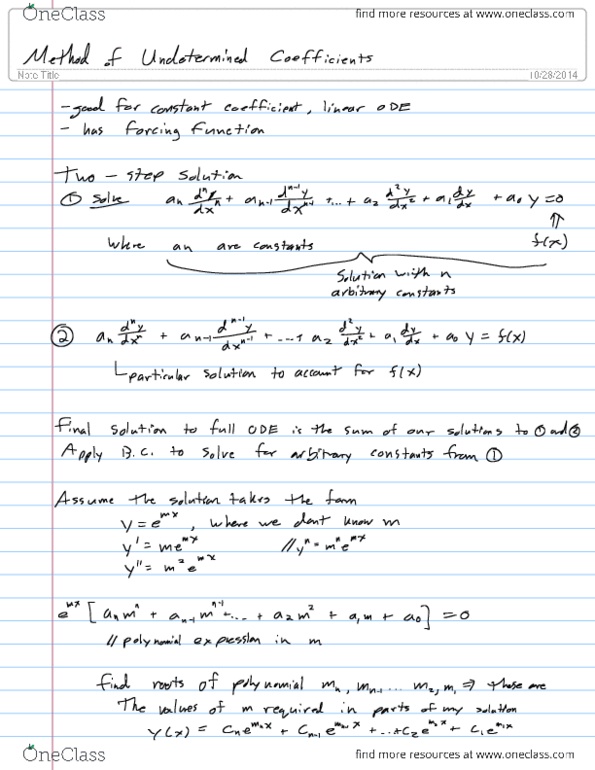 OneClass find more resources at www.oneclass.com
Method of Undetermined Coefficients
Note Title 10/28/2014
- good for constant coefficient, linear ODE
- has forcing function
Two - step solution
① Solve aₙ dⁿy/dxⁿ + aₙ₋₁ dⁿ⁻¹y/dxⁿ⁻¹ + ... + a₂ d²y/dx² + a₁ dy/dx + a₀ y = 0
⇑
where aₙ are constants f(x)
Solution with n
arbitrary constants
② aₙ dⁿy/dxⁿ + aₙ₋₁ dⁿ⁻¹y/dxⁿ⁻¹ + ... + a₂ d²y/dx² + a₁ dy/dx + a₀ y = f(x)
particular solution to account for f(x)
Final solution to full ODE is the sum of our solutions to ① and ②
Apply B.C. to solve for arbitrary constants from ①
Assume the solution takes the form
y = eᵐˣ, where we dont know m
y' = meᵐˣ // yⁿ = mⁿeᵐˣ
y'' = m²eᵐˣ
eᵐˣ [aₙmⁿ + aₙ₋₁mⁿ⁻¹ + ... + a₂m² + a₁m + a₀] = 0
// polynomial expression in m
find roots of polynomial mₙ, mₙ₋₁ ... m₂, m₁ ⇒ these are
The values of m required in parts of my solution
y(x) = Cₙe^(mₙx) + Cₙ₋₁e^(mₙ₋₁x) + ... + C₂e^(m₂x) + C₁e^(m₁x)
OneClass find more resources at www.oneclass.com